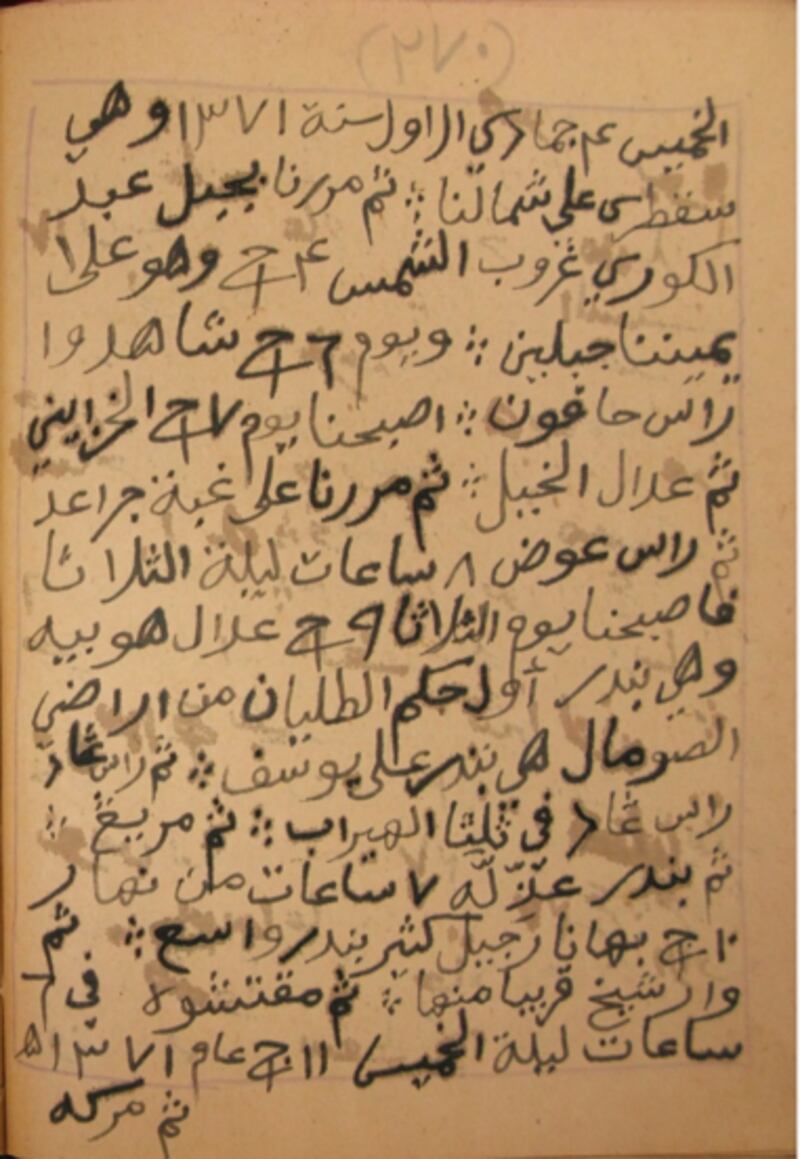 (٢٧٠)
الخميس ٤ جمادي الاول سنة ١٣٧١ وهي
سقطرى على شمالنا ؛ ثم مررنا بجبل عبد
الكوري غروب الشمس ٤ ج وهو على
يميننا جبلين ؛ ويوم ٦ ج شاهدوا
راس حافون ؛ اصبحنا يوم ٧ ج الخزايني
ثم عدال الخيل ؛ ثم مررنا على غبة جراعد
ثم راس عوض ٨ ساعات ليلة الثلاثا
فاصبحنا يوم الثلاثا ٩ ج عدال هوبيه
وهي بندر أول حكم الطليان من اراضي
الصومال هي بندر علي يوسف ؛ ثم راس عاد
راس عاد في ثلثا الهراب ؛ ثم مريغ ؛
ثم بندر عدّلّه ٧ ساعات من نهار
١٠ ج بها نارجيل كثير بندر واسع ؛ ثم
وارشيخ قريبا منها ؛ ثم مقتشوه في
ساعات ليلة الخميس ١١ ج عام ١٣٧١ ه
ثم مركه